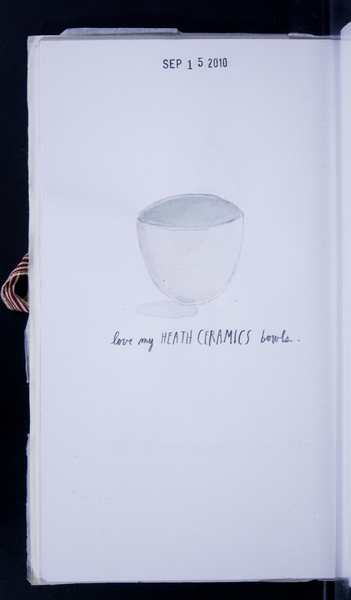 SEP 15 2010
love my HEATH CERAMICS bowls.